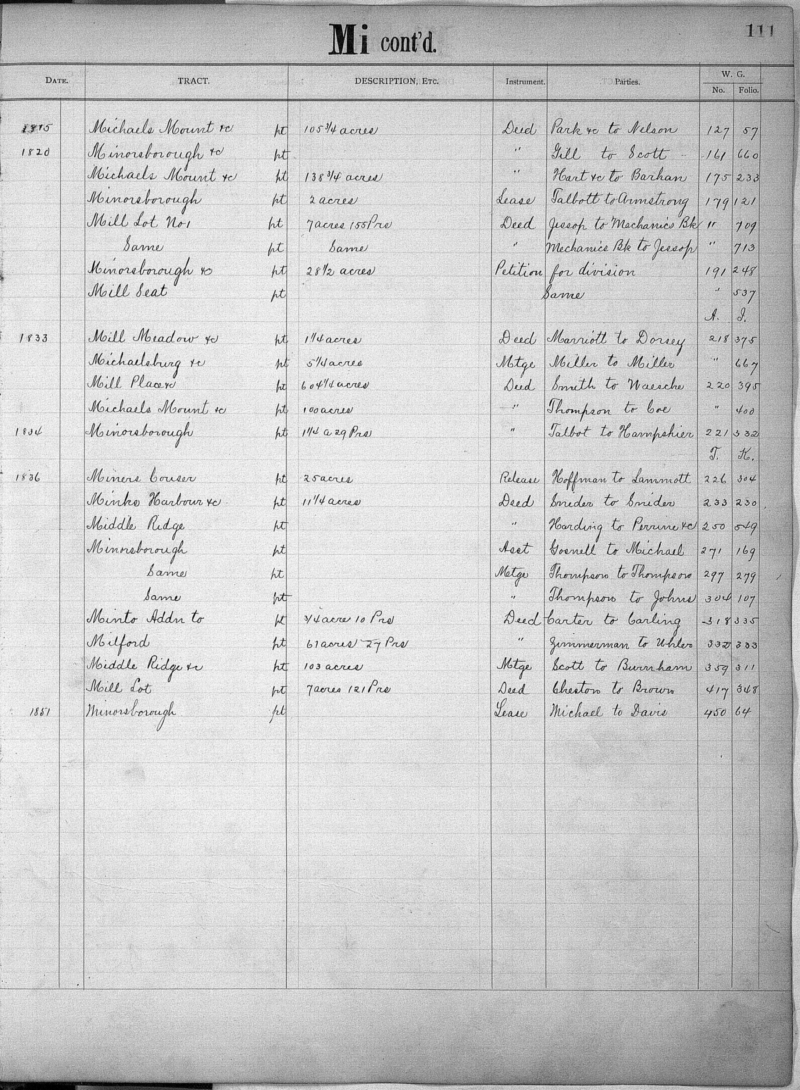 111
Mi cont'd.
DATE. TRACT. DESCRIPTION, ETC. Instrument. Parties. W. G.
No. Folio.
1815 Michaels Mount &c pt 105 3/4 acres Deed Park &c to Nelson 127 57
1820 Minorsborough &c pt " Gill to Scott 161 660
Michaels Mount &c pt 138 3/4 acres " Hart &c to Barhan 175 233
Minorsborough pt 2 acres Lease Talbott to Armstrong 179 121
Mill Lot No 1 pt 7 acres 155 Prs Deed Jessop to Mechanics Bk " 709
Same pt Same " Mechanics Bk to Jessop " 713
Minorsborough &c pt 28 1/2 acres Petition for division 191 248
Mill Seat pt Same " 537
A. I.
1833 Mill Meadow &c pt 1 1/4 acres Deed Marriott to Dorsey 218 375
Michaelsburg &c pt 5 1/4 acres Mtge Miller to Miller " 667
Mill Place &c pt 604 1/2 acres Deed Smith to Waesche 220 395
Michaels Mount &c pt 100 acres " Thompson to Coe " 400
1834 Minorsborough pt 1 1/4 a 29 Prs " Talbot to Hampshier 221 332
T. K.
1836 Miners Couser pt 25 acres Release Hoffman to Lammott 226 304
Minks Harbour &c pt 11 1/4 acres Deed Snider to Snider 233 230
Middle Ridge pt " Harding to Perrine &c 250 549
Minorsborough pt Asst Gosnell to Michael 271 169
Same pt Mtge Thompson to Thompson 297 279
Same pt " Thompson to Johns 304 107
Minto Addn to pt 3/4 acre 10 Prs Deed Carter to Carling 318 335
Milford pt 61 acres 27 Prs " Zimmerman to Uhler 332 333
Middle Ridge &c pt 103 acres Mtge Scott to Burnham 359 311
Mill Lot pt 7 acres 121 Prs Deed Cheston to Brown 417 348
1851 Minorsborough pt Lease Michael to Davis 450 64